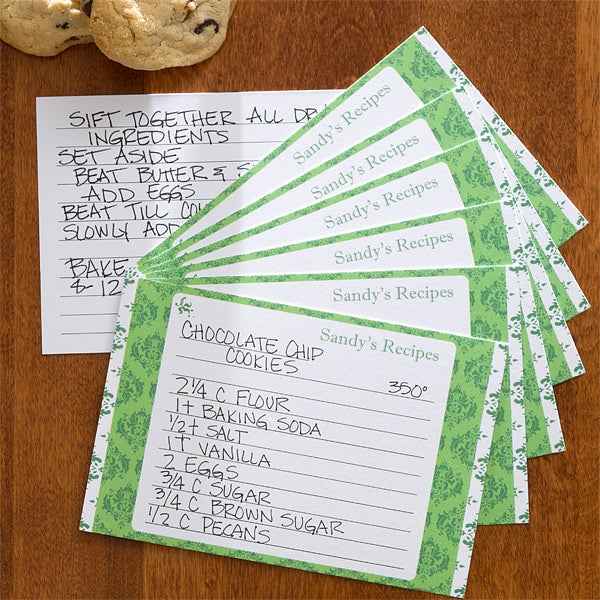 SIFT TOGETHER ALL
INGREDIENTS
SET ASIDE
BEAT BUTTER &
ADD EGGS
BEAT TILL
SLOWLY ADD
BAKE
& 12
Sandy's Recipes
Sandy's Recipes
Sandy's Recipes
Sandy's Recipes
Sandy's Recipes
Sandy's Recipes
CHOCOLATE CHIP
COOKIES
350°
2 1/4 C FLOUR
1 t BAKING SODA
1/2 t SALT
1 T VANILLA
2 EGGS
3/4 C SUGAR
3/4 C BROWN SUGAR
1/2 C PECANS